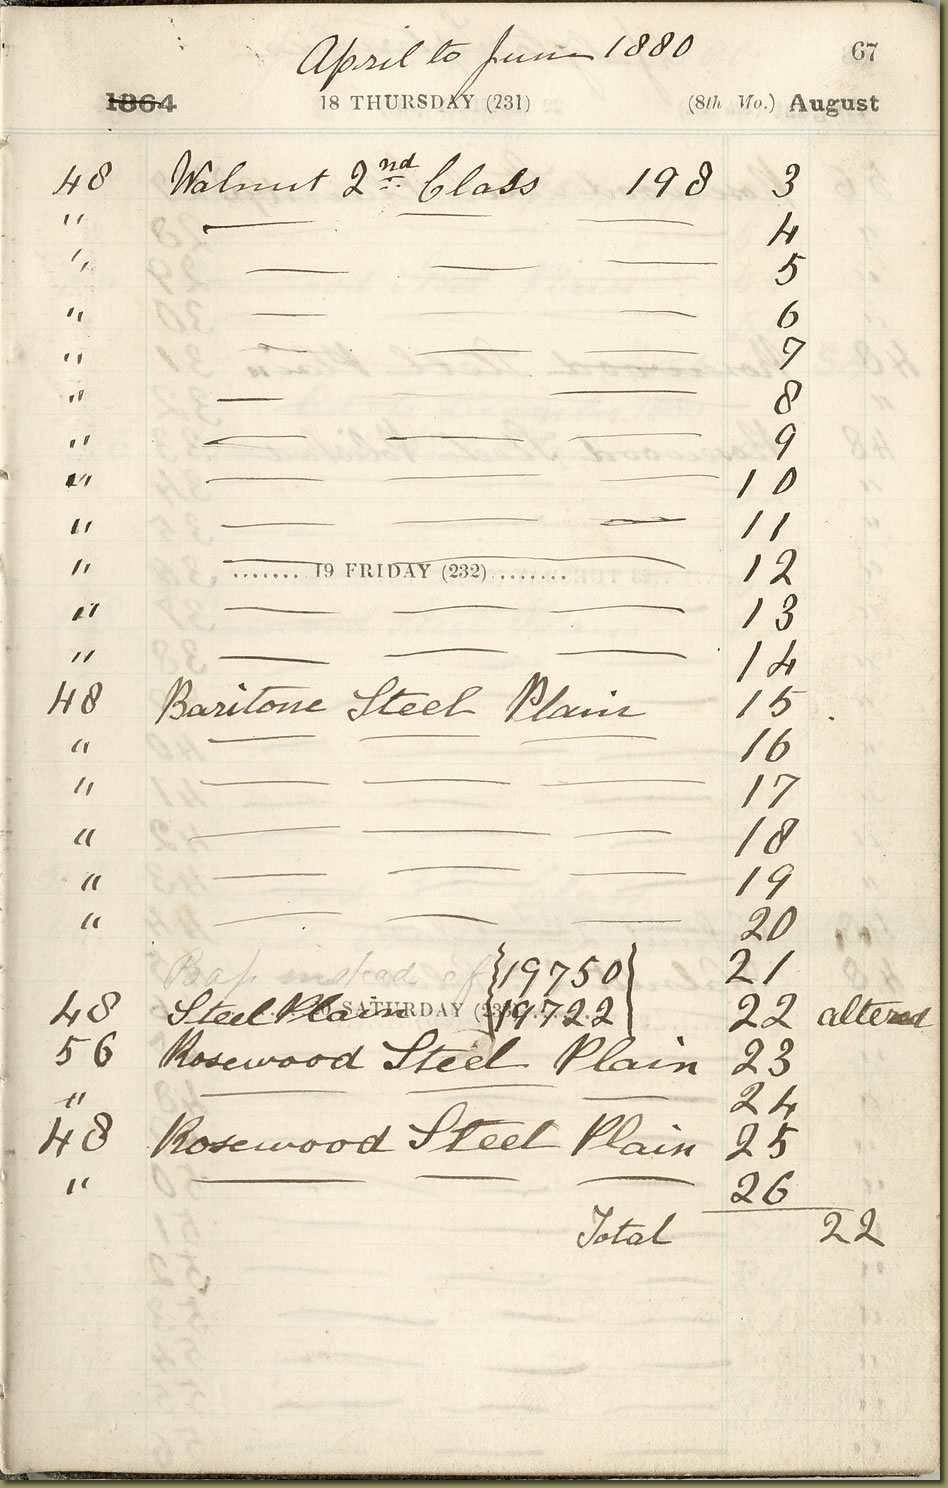 April to June 1880
67
1864 18 THURSDAY (231) (8th Mo.) August
48 Walnut 2nd Class 198 3
" — — — 4
" — — — 5
" — — 6
" — — — 7
" — — 8
" — — — 9
" — — — 10
" — — — 11
" — — — 12
....... 19 FRIDAY (232) .......
" — — — 13
" — — — 14
48 Baritone Steel Plain 15
" — — — 16
" — — — 17
" — — — 18
" — — — 19
" — — — 20
Bass instead of {19750} 21
48 Steel Plain {19722} 22 altered
SATURDAY
56 Rosewood Steel Plain 23
" — — — 24
48 Rosewood Steel Plain 25
" — — — 26
Total 22